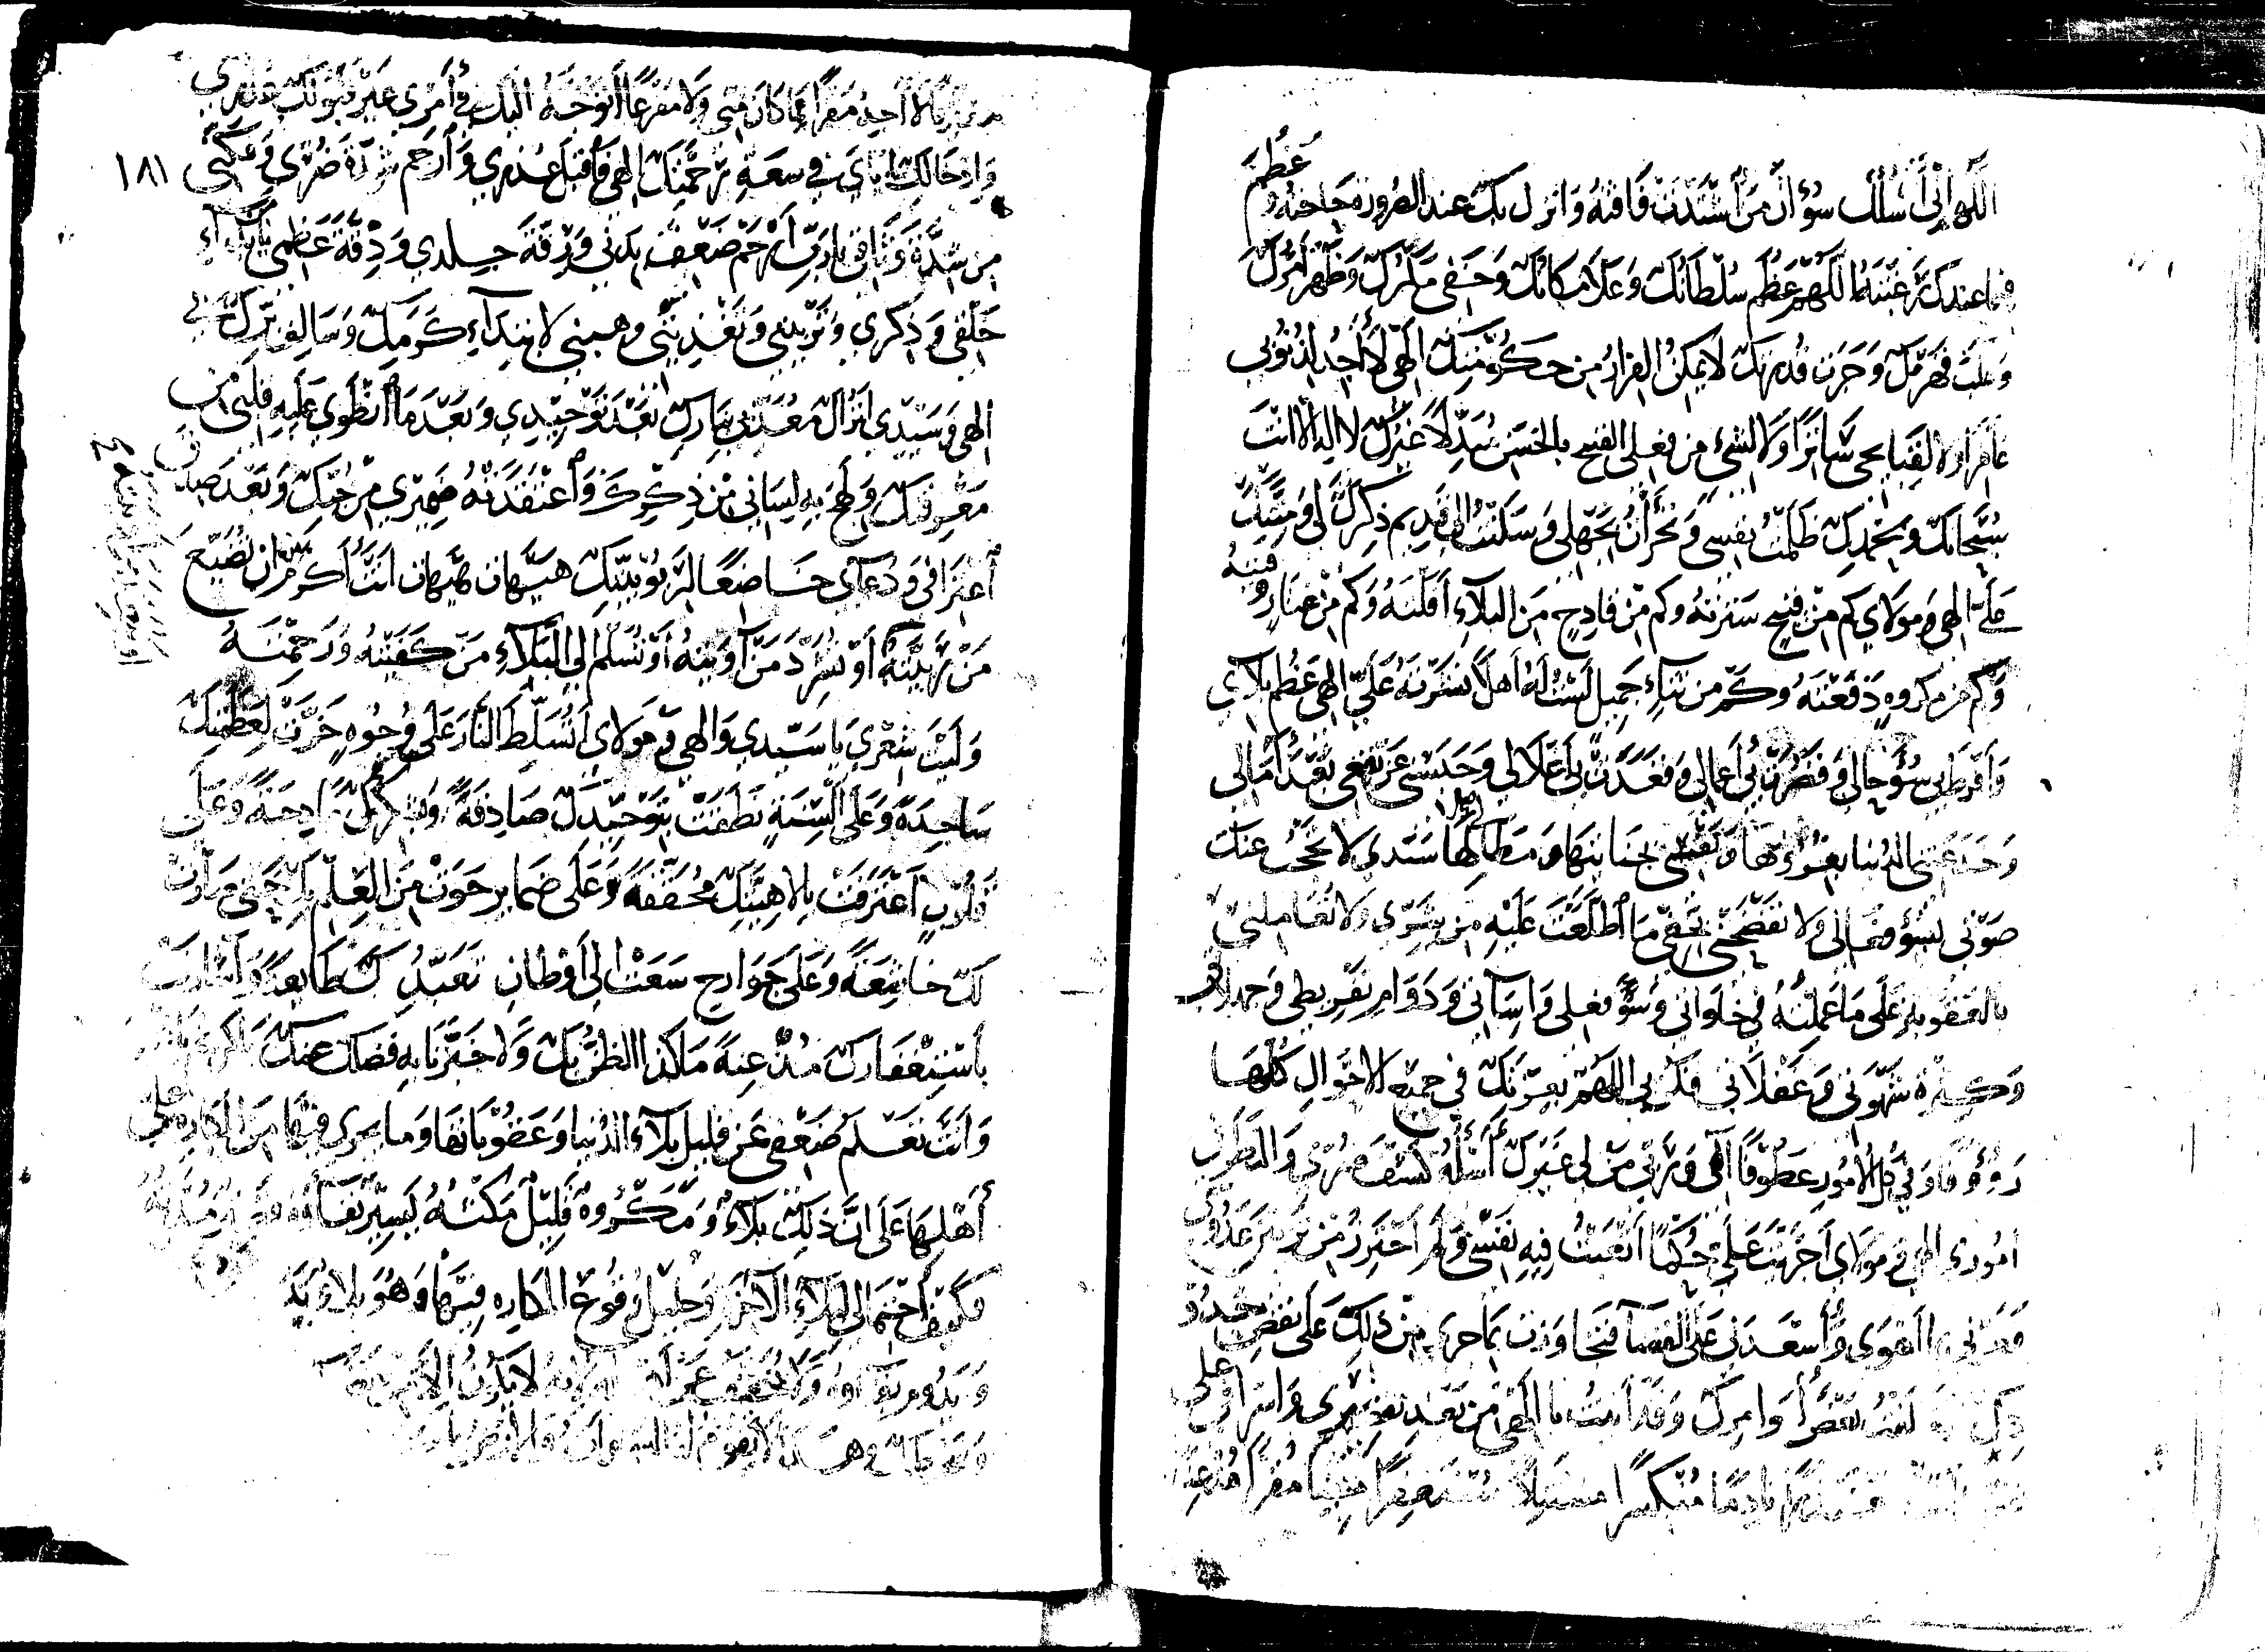 اللهم اني أسئلك سؤال من اشتدت فاقته وانزل بك عند الضرورة حاجته وعظم
فيما عندك رغبته اللهم عظم سلطانك وعلا مكانك وخفي مكرك وظهر امرك
وغلب قهرك وجرت قدرتك لا يمكن الفرار من حكومتك الهي لا أجد لذنوبي
غافرا ولا لقبايحي ساترا ولا لشيء من فعلي القبيح بالحسن مبدلا غيرك لا اله الا انت
سبحانك وبحمدك ظلمت نفسي وتجرأت بجهلي وسكنت الى قديم ذكرك لي ومنك
علي الهي ومولاي كم من قبيح سترته وكم من فادح من البلاء أقلته وكم من عثار وقيته
وكم من مكروه دفعته وكم من ثناء جميل لست له أهلا نشرته علي الهي عظم بلائي
وأفرط بي سوء حالي وقصرت بي أعمالي وقعدت بي أغلالي وحبسني عن نفعي بعد أمالي
وخدعتني الدنيا بغرورها ونفسي بخيانتها ومطالها سيدي لا تحجب عنك
صوتي لسوء فعالي ولا تفضحني بخفي ما اطلعت عليه من سري ولا تعاجلني
بالعقوبة على ما عملته في خلواتي وسوء فعلي واساتي ودوام تفريطي وجهالتي
وكثرة شهوتي وغفلاتي فكن بي اللهم بعزتك في جميع الاحوال كلها
رؤوفا وفي كل الأمور عطوفا الهي وربي من لي غيرك أسئله كشف ضري والنظر في
اموري الهي ومولاي أجريت علي حكما اتبعت فيه نفسي ولم احترز من تزيين عدوي
فغرني بما أهوى وأسعده على القضاء فتجاوزت بما جرى من ذلك على بعض حدودك
لفت بعض أوامرك وقد أتيت يا الهي من بعد تقصيري واسرافي على
معتذرا نادما منكسرا مستقيلا مستغفرا منيبا مقرا مذعنا
لا أجد مفرا مما كان مني ولا مفزعا أتوجه اليك في أمري غير قبولك عذري
وادخالك اياي في سعة رحمتك الهي فاقبل عذري وارحم شدة ضري وفكني
١٨١
من شدة وثاقي يا رب ارحم ضعف بدني ورقة جلدي ودقة عظمي
خلقي وذكري وتربيتي وتغذيتي وهبني لابتداء كرمك وسالف برك بي
الهي وسيدي اتراك معذبي بنارك بعد توحيدي وبعد ما انطوى عليه قلبي من
معرفتك ولهج به لساني من ذكرك واعتقدته ضميري من حبك وبعد صدق
اعترافي ودعائي خاضعا لربوبيتك هيهات هيهات انت أكرم من ان تضيع
من ربيته أو تشرد من آويته أو تسلم الى البلاء من كفيته ورحمته
وليت شعري يا سيدي والهي ومولاي أتسلط النار على وجوه خرت لعظمتك
ساجدة وعلى السنة نطقت بتوحيدك صادقة وبشكرك مادحة وعلى
قلوب اعترفت بالاهيتك محققة وعلى ضماير حوت من العلم بك حتى صارت
لك خاشعة وعلى جوارح سعت الى أوطان تعبدك طايعة وأشارت
باستغفارك مذعنة ما كذا الظن بك ولا خبرنا به فضلك عنك يا كريم يا رب
وانت تعلم ضعفي عن قليل بلاء الدنيا وعقوباتها وما يجري فيها من المكاره على
أهلها على ان ذلك بلاء ومكروه قليل مكثه يسير بقاؤه مدته
فكيف احتمالي لبلاء الآخرة وجليل وقوع المكاره فيها وهو بلاء
ويدوم بقاؤه ولا يخفف عن أهله لا يكون الا
وهذا لا تقوم له السموات والارض يا